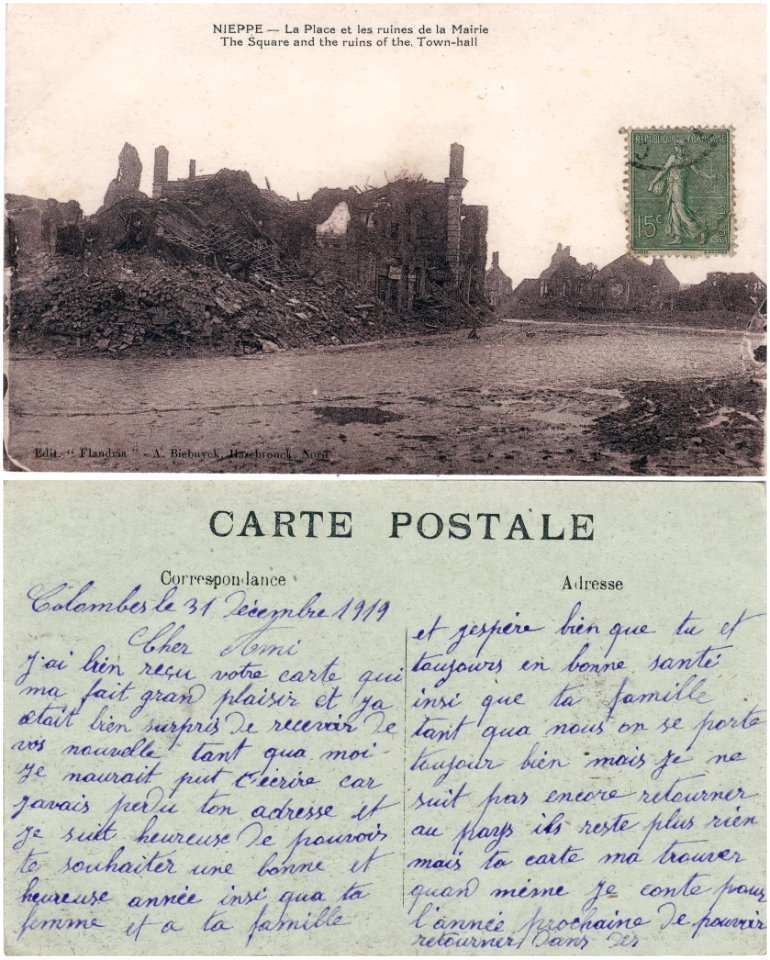 NIEPPE — La Place et les ruines de la Mairie
The Square and the ruins of the. Town-hall
REPUBLIQUE FRANÇAISE
15c
Edit. "Flandria" - A. Biebuyck, Hazebrouck. Nord
CARTE POSTALE
Correspondance
Colombes le 31 Décembre 1919
Cher Ami
J'ai bien reçu votre carte qui
ma fait grand plaisir et ja
était bien surpris de recevoir de
vos nouvelle tant qua moi
je naurait put t'ecrire car
javais perdu ton adresse et
je suit heureuse de pouvoir
te souhaiter une bonne et
heureuse année insi qua ta
femme et a ta famille
Adresse
et jespère bien que tu et
toujours en bonne santé
insi que ta famille
tant qua nous on se porte
toujour bien mais je ne
suit pas encore retourner
au pays ils reste plus rien
mais ta carte ma trouver
quand même je conte pour
l'année prochaine de pouvoir
retourner dans des